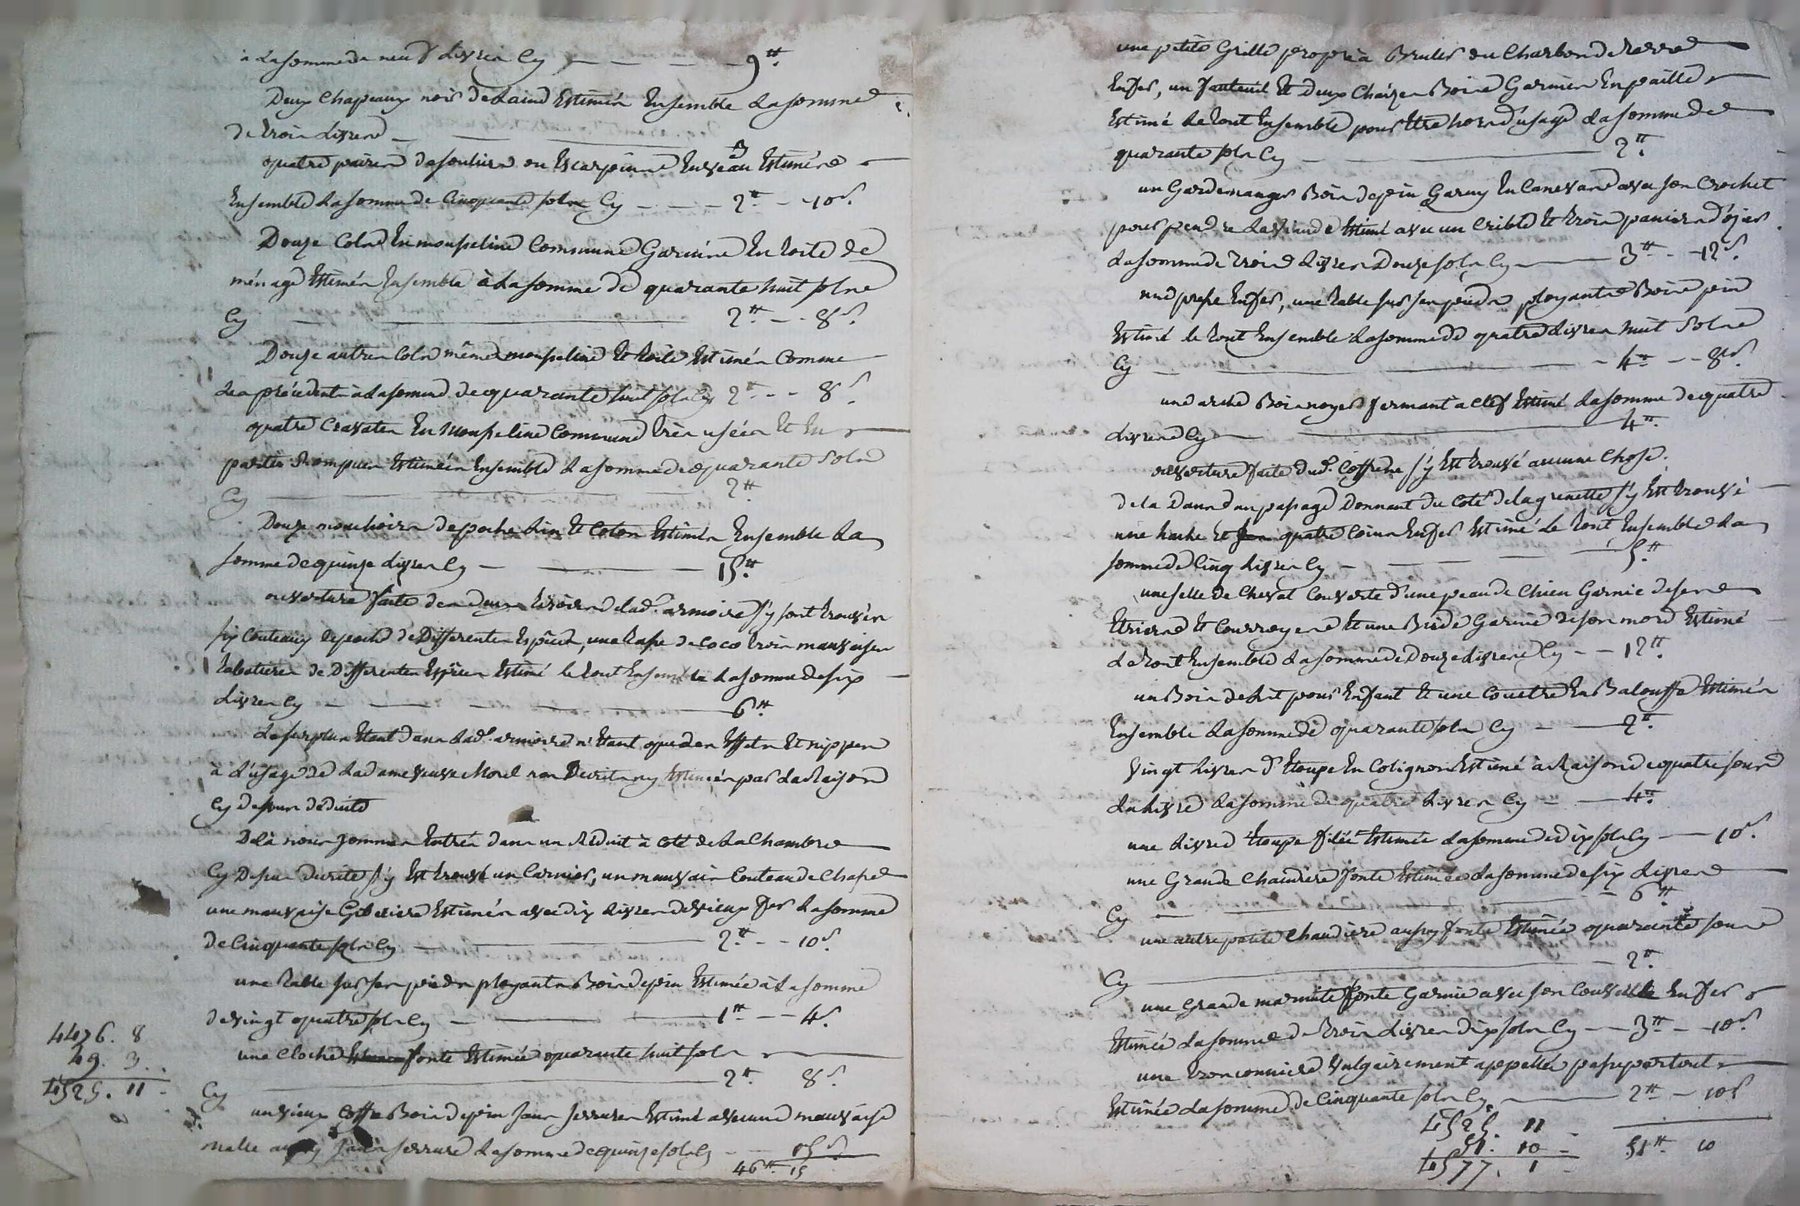 à la somme de neuf Livres Cy 9 ₶.
Deux Chapeaux noir de Laine Estimés Ensemble La somme
de trois Livres 3
quatre paires de souliers ou Escarpins En veau Estimés
Ensemble La somme de Cinquante sols Cy 2 ₶ 10 s.
Douze Cols En mousseline Commune Garnies En toile de
ménage Estimés Ensemble à La somme de quarante huit sols
Cy 2 ₶ 8 s.
Douze autres Cols même mousseline et toile Estimés Comme
Les précédents à La somme de quarante huit sols Cy 2 ₶ 8 s.
quatre Cravates En mousseline Commune très usées Et En
parties Rompues Estimées Ensemble La somme de quarante Sols
Cy 2 ₶
Douze mouchoirs de poche Lin Et Coton Estimés Ensemble La
somme de quinze Livres Cy 15 ₶
ouverture faite des deux tiroirs de Lad. armoire s'y sont trouvés
six Couteaux de poche de Differentes Espèces, une tasse de Coco trois mauvaises
tabatières de Differentes Espèces Estimé le tout Ensemble La somme de six
Livres Cy 6 ₶
Le surplus Etant dans Lad. armoire n'Etant que des Effets Et nippes
à L'usage de La dame veuve Morel non Estimés par La Raison
Cy dessus déduite
De là nous sommes Entrés dans un Réduit à Coté de La Chambre
Cy Dessus s'y Est trouvé un Carnier, un mauvais Couteau de Chasse
une mauvaise Gibeciere Estimés avec dix Livres de vieux fer La somme
de Cinquante sols Cy 2 ₶ 10 s.
une table sur ses pieds ployants Bois de pin Estimée à La somme
de vingt quatre sols Cy 1 ₶ 4 s.
une Cloche fonte Estimée quarante huit sols
Cy 2 ₶ 8 s.
un vieux Coffre Bois de pin sans serrures Estimé avec une mauvaise
malle aussy sans serrure La somme de quinze sols Cy 15 s
46 ₶ 15
4476. 8
49. 3
4525. 11
une petite Grille propre à Bruler du Charbon de Terre
En fer, un fauteuil Et Deux Chaises Bois Garnies En paille
Estimé Le tout Ensemble pour Etre hors d'usage La somme de
quarante sols Cy 2 ₶
un Gardemanger Bois de pin Garny En Canevas avec son Crochet
pour pendre La viande Estimé avec un Crible Et trois paniers d'osier
La somme de trois Livres Douze sols Cy 3 ₶ 12 s.
une En fer, une table sur ses pieds ployants Bois pin
Estimé le tout Ensemble La somme de quatre Livres huit Sols
Cy 4 ₶ 8 s.
une arche Bois noyer fermant a Clef Estimé La somme de quatre
Livres Cy 4 ₶
ouverture faite dud. Coffre ne s'y Est trouvé aucune Chose.
de la Dans un passage Donnant du Coté de la s'y Est trouvé
une hache Et quatre Coins En fer Estimé Le tout Ensemble La
somme de Cinq Livres Cy 5 ₶
une selle de Cheval Couverte d'une peau de Chien Garnie de ses
Etriers Et Courroyes Et une Bride Garnie de son mord Estimé
Le tout Ensemble La somme de Douze Livres Cy 12 ₶
un Bois de Lit pour Enfant Et une Couetre En Balouffe Estimés
Ensemble La somme de quarante sols Cy 2 ₶
vingt Livres d'Etoupe En Cotignon Estimé à Raison de quatre sous
La Livre La somme de quatre Livres Cy 4 ₶
une Livre Etoupe filée Estimée La somme de dix sols Cy 10 s.
une Grande Chaudiere fonte Estimée La somme de six Livres
Cy 6 ₶
une autre petite Chaudiere aussy fonte Estimée quarante sous
Cy 2 ₶
une Grande marmite fonte Garnie avec son Couvercle En fer
Estimée La somme de trois Livres dix sols Cy 3 ₶ 10 s.
une tronconniere vulgairement appellée passepartout
Estimée La somme de Cinquante sols Cy 2 ₶ 10 s
4525. 11
51. 10
4577. 1
51 ₶ 10